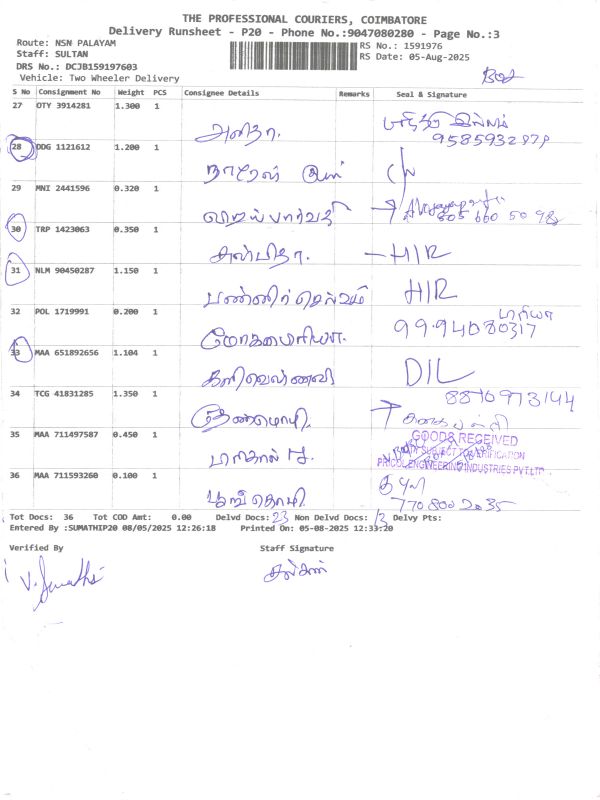 THE PROFESSIONAL COURIERS, COIMBATORE
Delivery Runsheet - P20 - Phone No.:9047080280 - Page No.:3
Route: NSN PALAYAM
RS No.: 1591976
Staff: SULTAN
RS Date: 05-Aug-2025
DRS No.: DCJB159197603
Vehicle: Two Wheeler Delivery
S No Consignment No Weight PCS Consignee Details Remarks Seal & Signature
27 OTY 3914281 1.300 1
அனிதா.
9585932979
28 DDG 1121612 1.200 1
29 MNI 2441596 0.320 1
30 TRP 1423063 0.350 1
H/R
31 NLM 90450287 1.150 1
பன்னீர் செல்வம் H/R
32 POL 1719991 0.200 1 மரியா
99.94080317
33 MAA 651892656 1.104 1
D/L
34 TCG 41831285 1.350 1 8870973144
தேன்மொழி.
35 MAA 711497587 0.450 1
GOODS RECEIVED
SUBJECT TO VERIFICATION
PRICOL ENGINEERING INDUSTRIES PVT.LTD
36 MAA 711593260 0.100 1
பூங்கொடி
770 800 2035
Tot Docs: 36 Tot COD Amt: 0.00 Delvd Docs: 23 Non Delvd Docs: 13 Delvy Pts:
Entered By :SUMATHIP20 08/05/2025 12:26:18 Printed On: 05-08-2025 12:33:20
Verified By Staff Signature
V. Sumathi